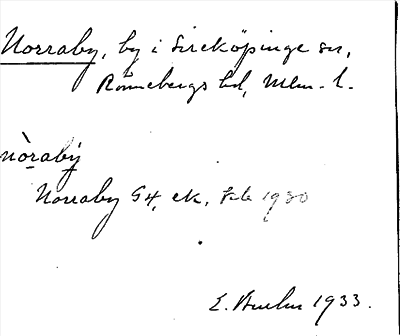 Norraby, by i Sireköpinge sn,
Rönnebergs hd, Mlm. l.
nòrabý
Norraby G4, ek, 1930
E. 1933.